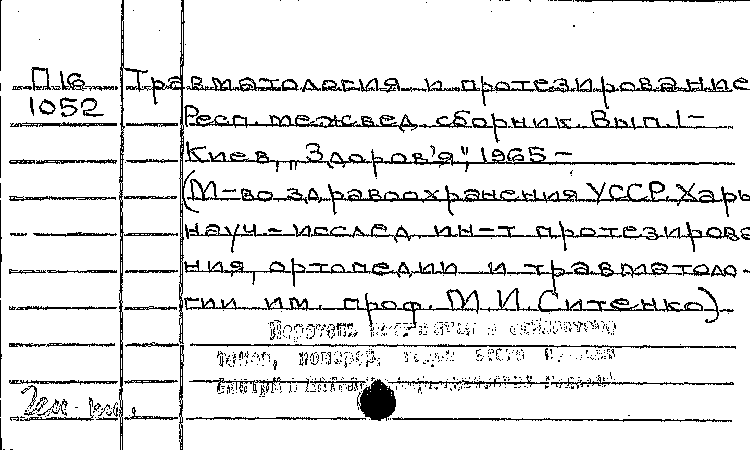 П16 Травматология и протезирование
1052 Респ. межвед. сборник. Вып. 1-
Киев, „Здоров'я", 1965-
(М-во здравоохранения УССР. Харь
науч.-исслед. ин-т протезирова
ния, ортопедии и травматоло-
гии им. проф. М.И. Ситенко)